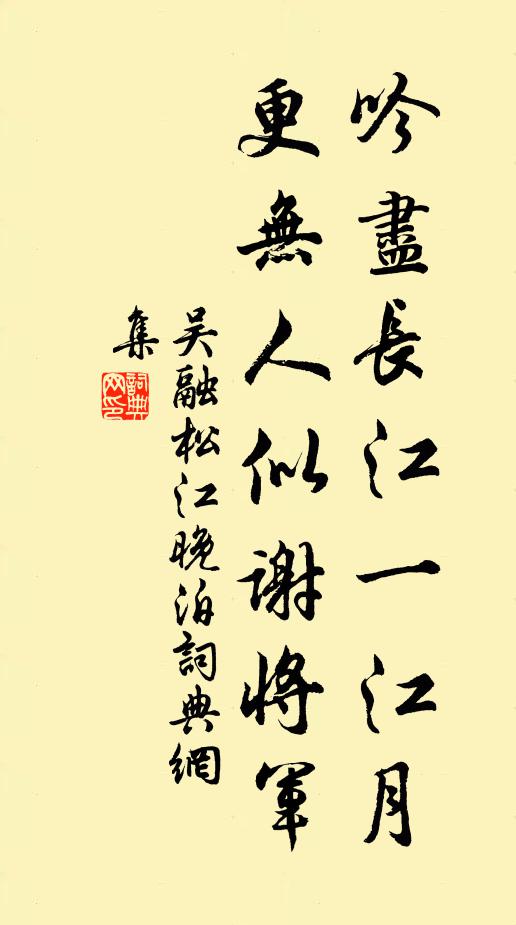 吟盡長江一江月
更無人似謝將軍
吳融松江晚泊詞典網
集
詞典
网印